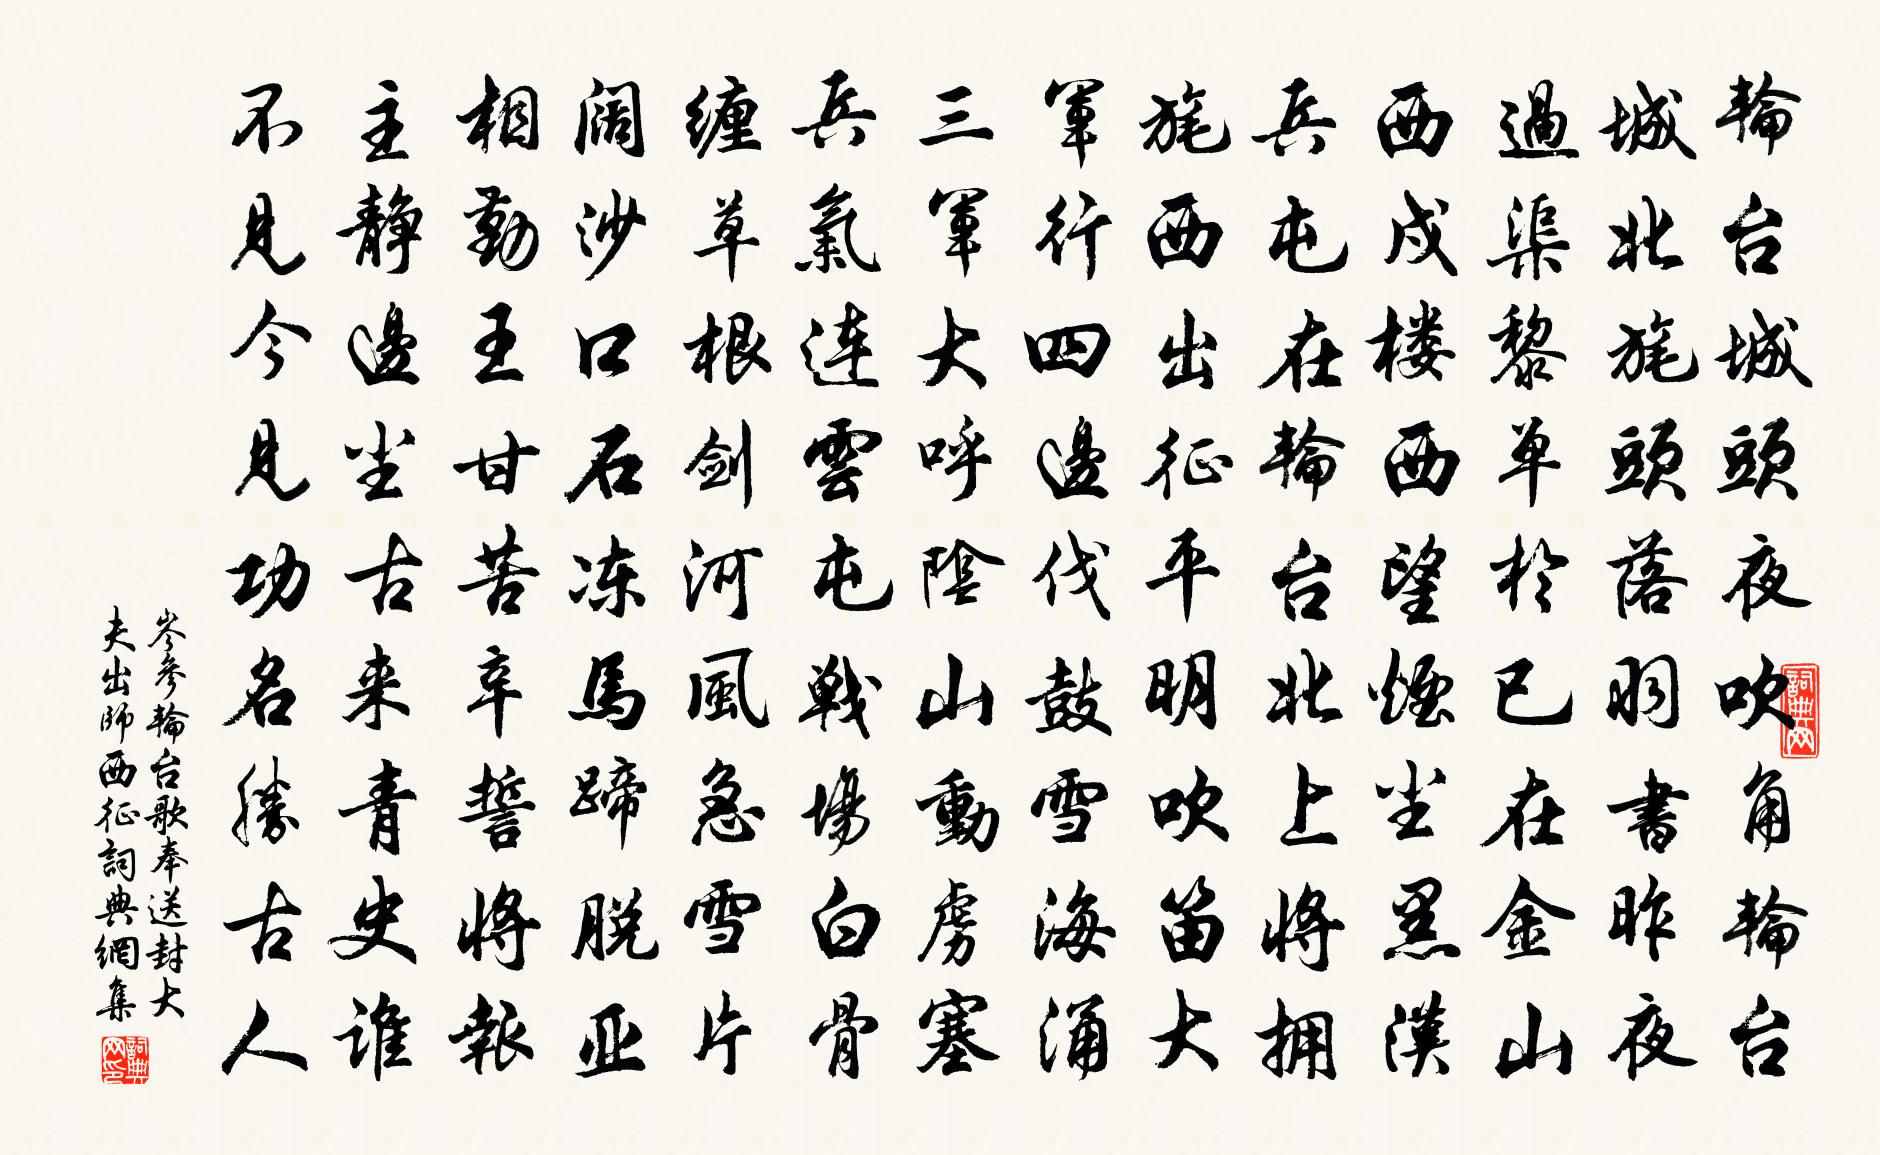 輪台城頭夜吹角輪台
城北旄頭落羽書昨夜
過渠黎單於已在金山
西戍楼西望煙尘黑漢
兵屯在輪台北上將拥
旄西出征平明吹笛大
軍行四邊伐鼓雪海涌
三軍大呼陰山動虏塞
兵氣連雲屯戰場白骨
缠草根剑河風急雪片
阔沙口石冻馬蹄脱亚
相勤王甘苦辛誓將報
主静邊尘古来青史谁
不見今見功名勝古人
岑参輪台歌奉送封大
夫出師西征詞典網集
詞典网
詞典网印